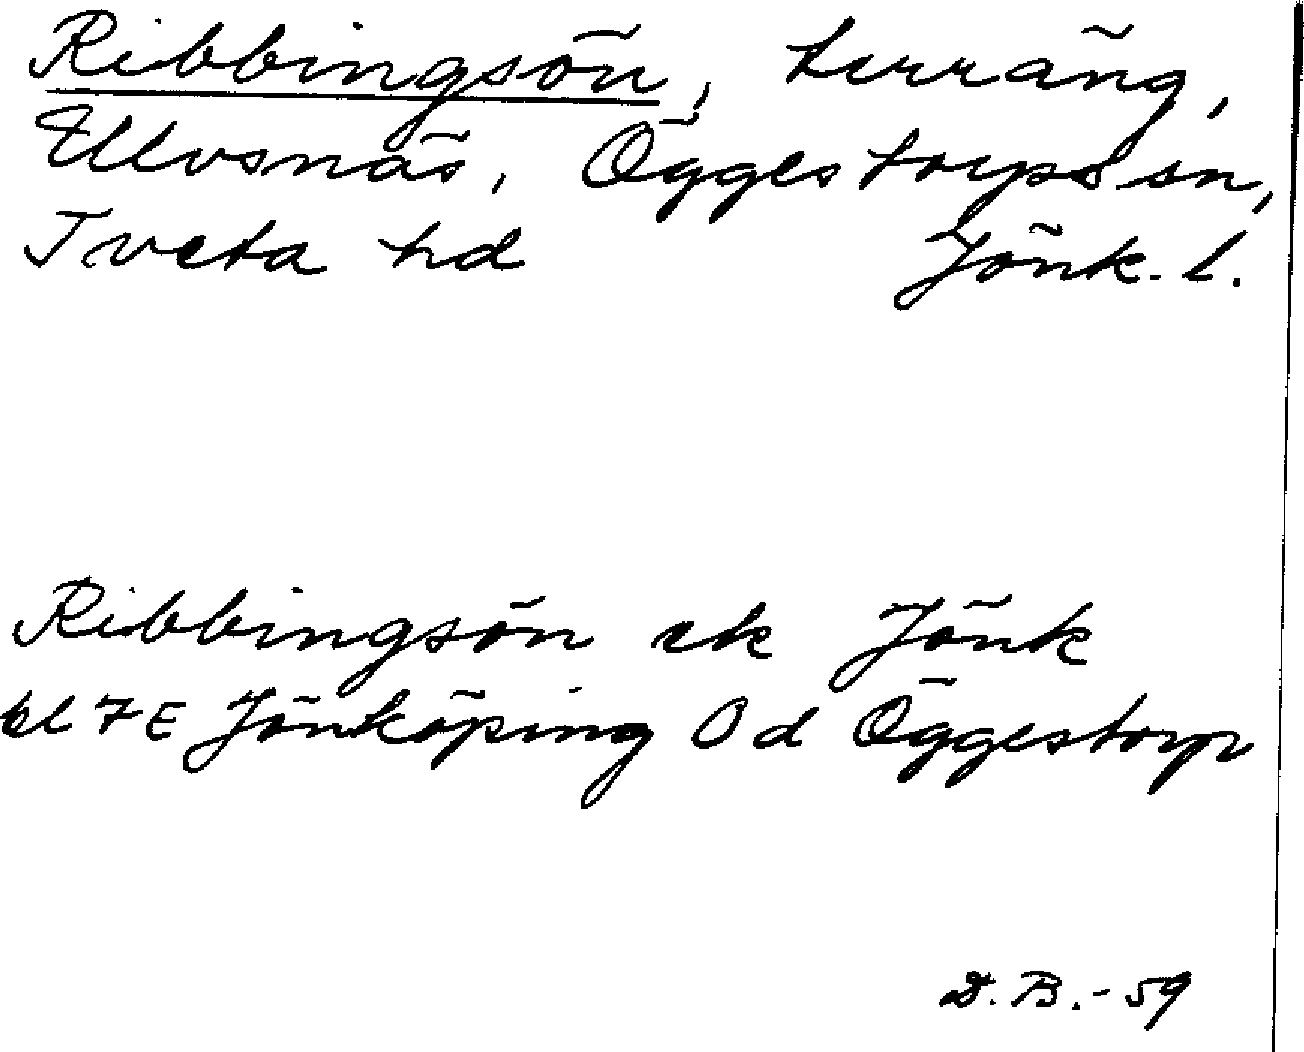 Ribbingsön, terräng,
Ulvsnäs, Öggestorps sn,
Tveta hd Jönk. l.
Ribbingsön ek Jönk
bl 7E Jönköping 0d Öggestorp
D.B.-59